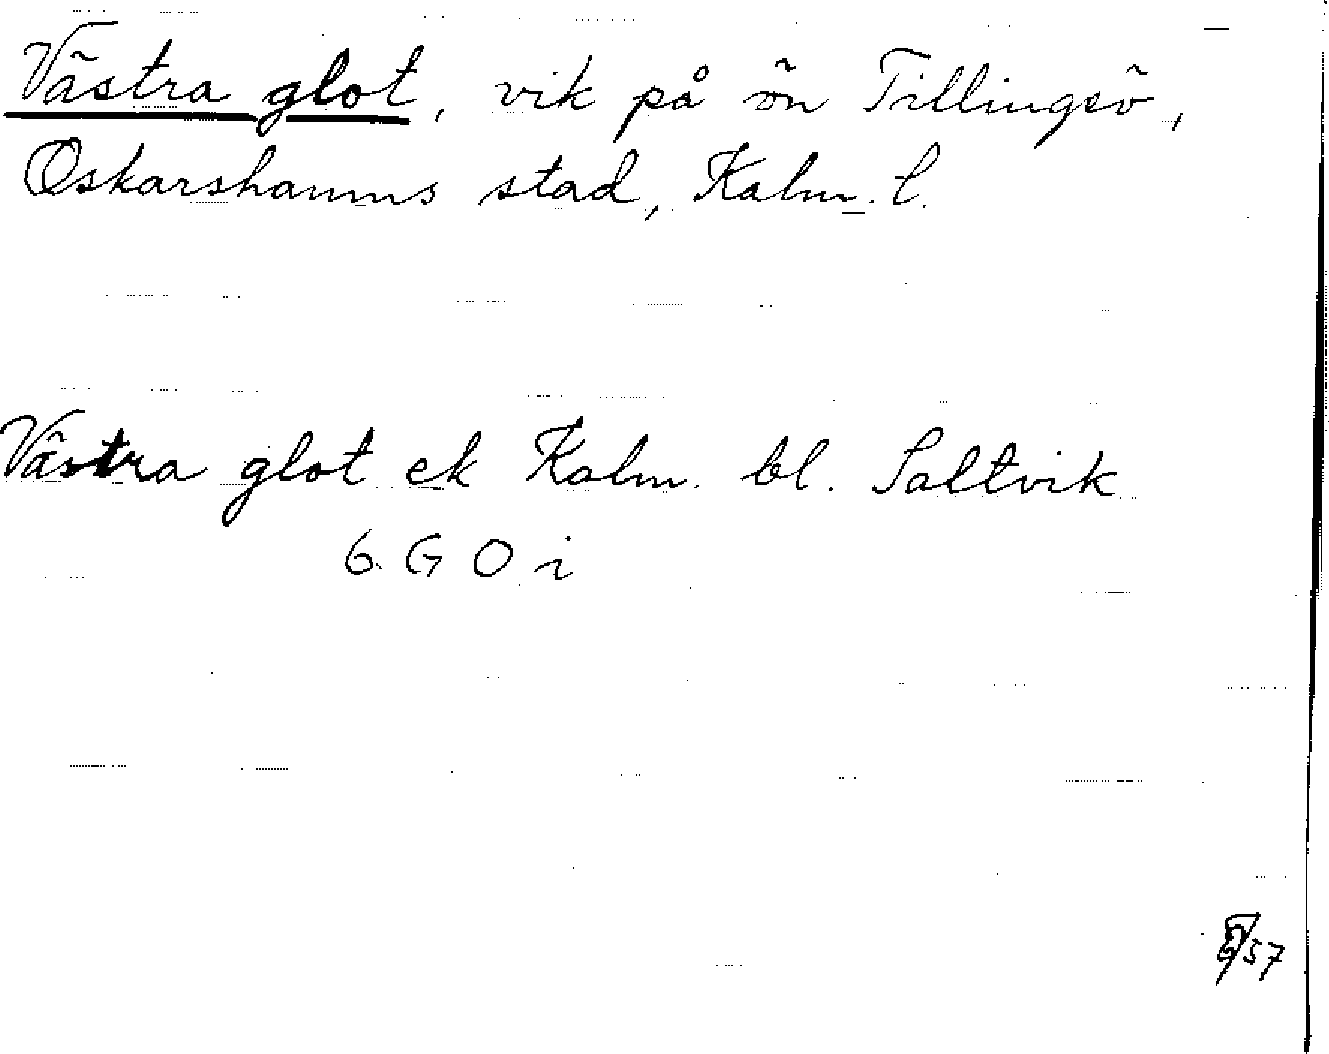 Västra glot, vik på ön Tillingsö,
Oskarshamns stad, Kalm. l.
Västra glot ek Kalm. bl. Saltvik
6 G 0 i
57